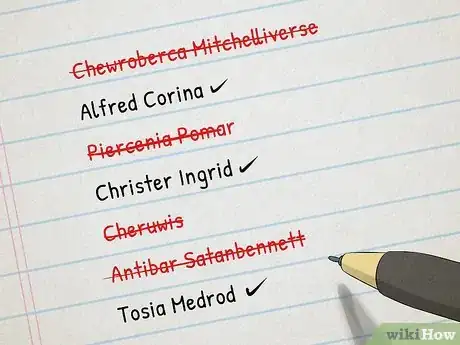 Chewroberca Mitchelliverse
Alfred Corina ✓
Piercenia Pomar
Christer Ingrid ✓
Cheruwis
Antibar Satanbennett
Tosia Medrod ✓
wikiHow